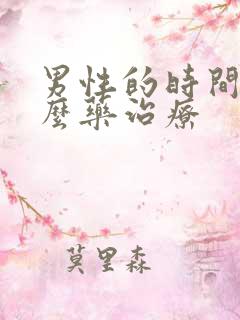 男性的時間
麼藥治療
莫里森